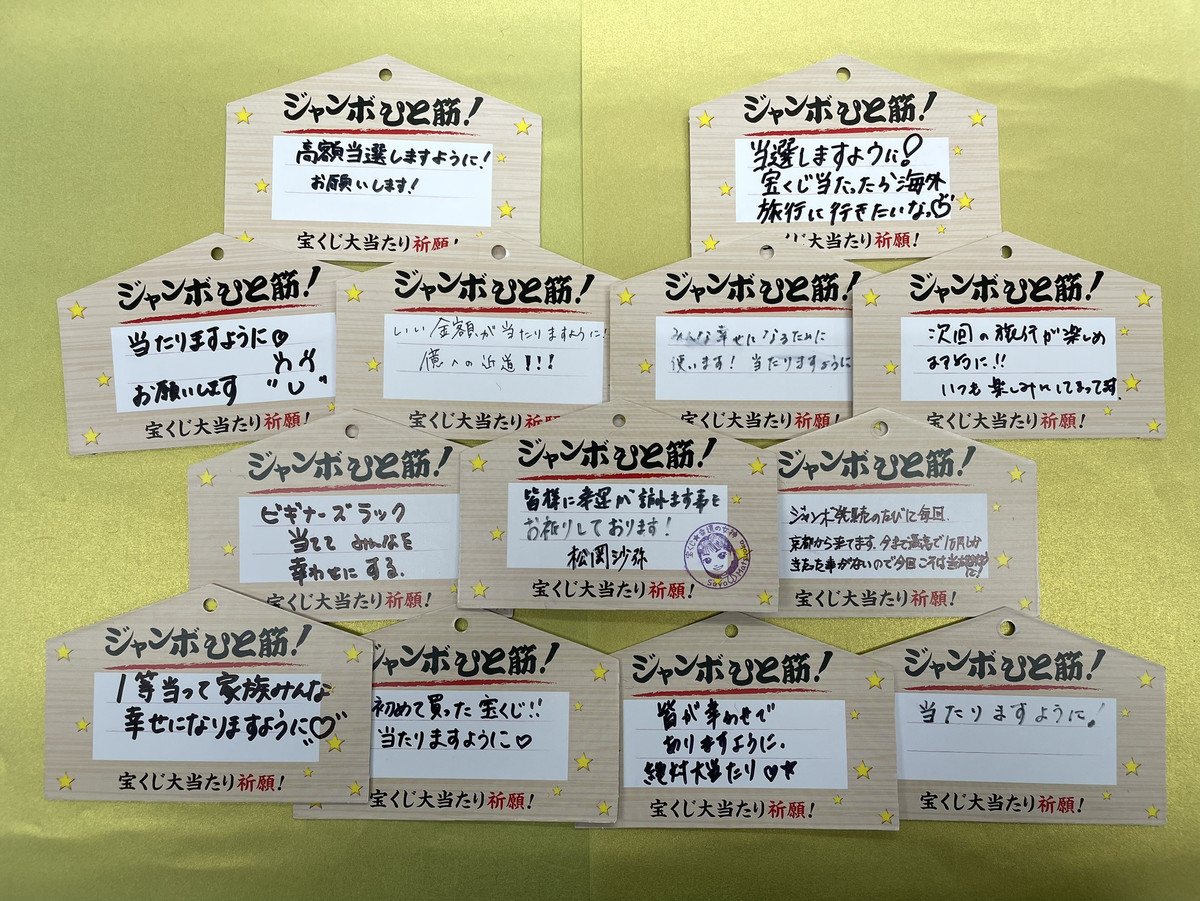 ジャンボひと筋!
高額当選しますように!
お願いします!
宝くじ大当たり祈願!
ジャンボひと筋!
当選しますように!
宝くじ当たったら海外
旅行に行きたいな♡
じ大当たり祈願!
ジャンボひと筋!
当たりますように♡
お願いします
宝くじ大当たり祈願!
ジャンボひと筋!
いい金額が当たりますように!
億への近道!!!
宝くじ大当たり祈願
ジャンボひと筋!
みんな幸せになるために
使います! 当たりますように
宝くじ大当たり祈願!
ジャンボひと筋!
次回の旅行が楽しめ
ますように!!
いつも楽しみにしてます
宝くじ大当たり祈願!
ジャンボひと筋!
ビギナーズラック
当てて みんなを
幸わせにする.
宝くじ大当たり祈願!
ジャンボひと筋!
皆様に幸運が訪れます事を
お祈りしております!
松岡沙弥
宝くじ★幸運の女神
宝くじ大当たり祈願!
ジャンボひと筋!
ジャンボ発売のたびに毎回.
京都から来てます. 今まで最高で1万円しか
きたった事がないので今回こそは
宝くじ大当たり祈願!
ジャンボひと筋!
1等当って家族みんな
幸せになりますように♡
宝くじ大当たり祈願!
ジャンボひと筋!
初めて買った宝くじ!!
当たりますように♡
宝くじ大当たり祈願!
ジャンボひと筋!
皆が幸わせで
ありますように.
絶対大当たり♡★
宝くじ大当たり祈願!
ジャンボひと筋!
当たりますように!
宝くじ大当たり祈願!